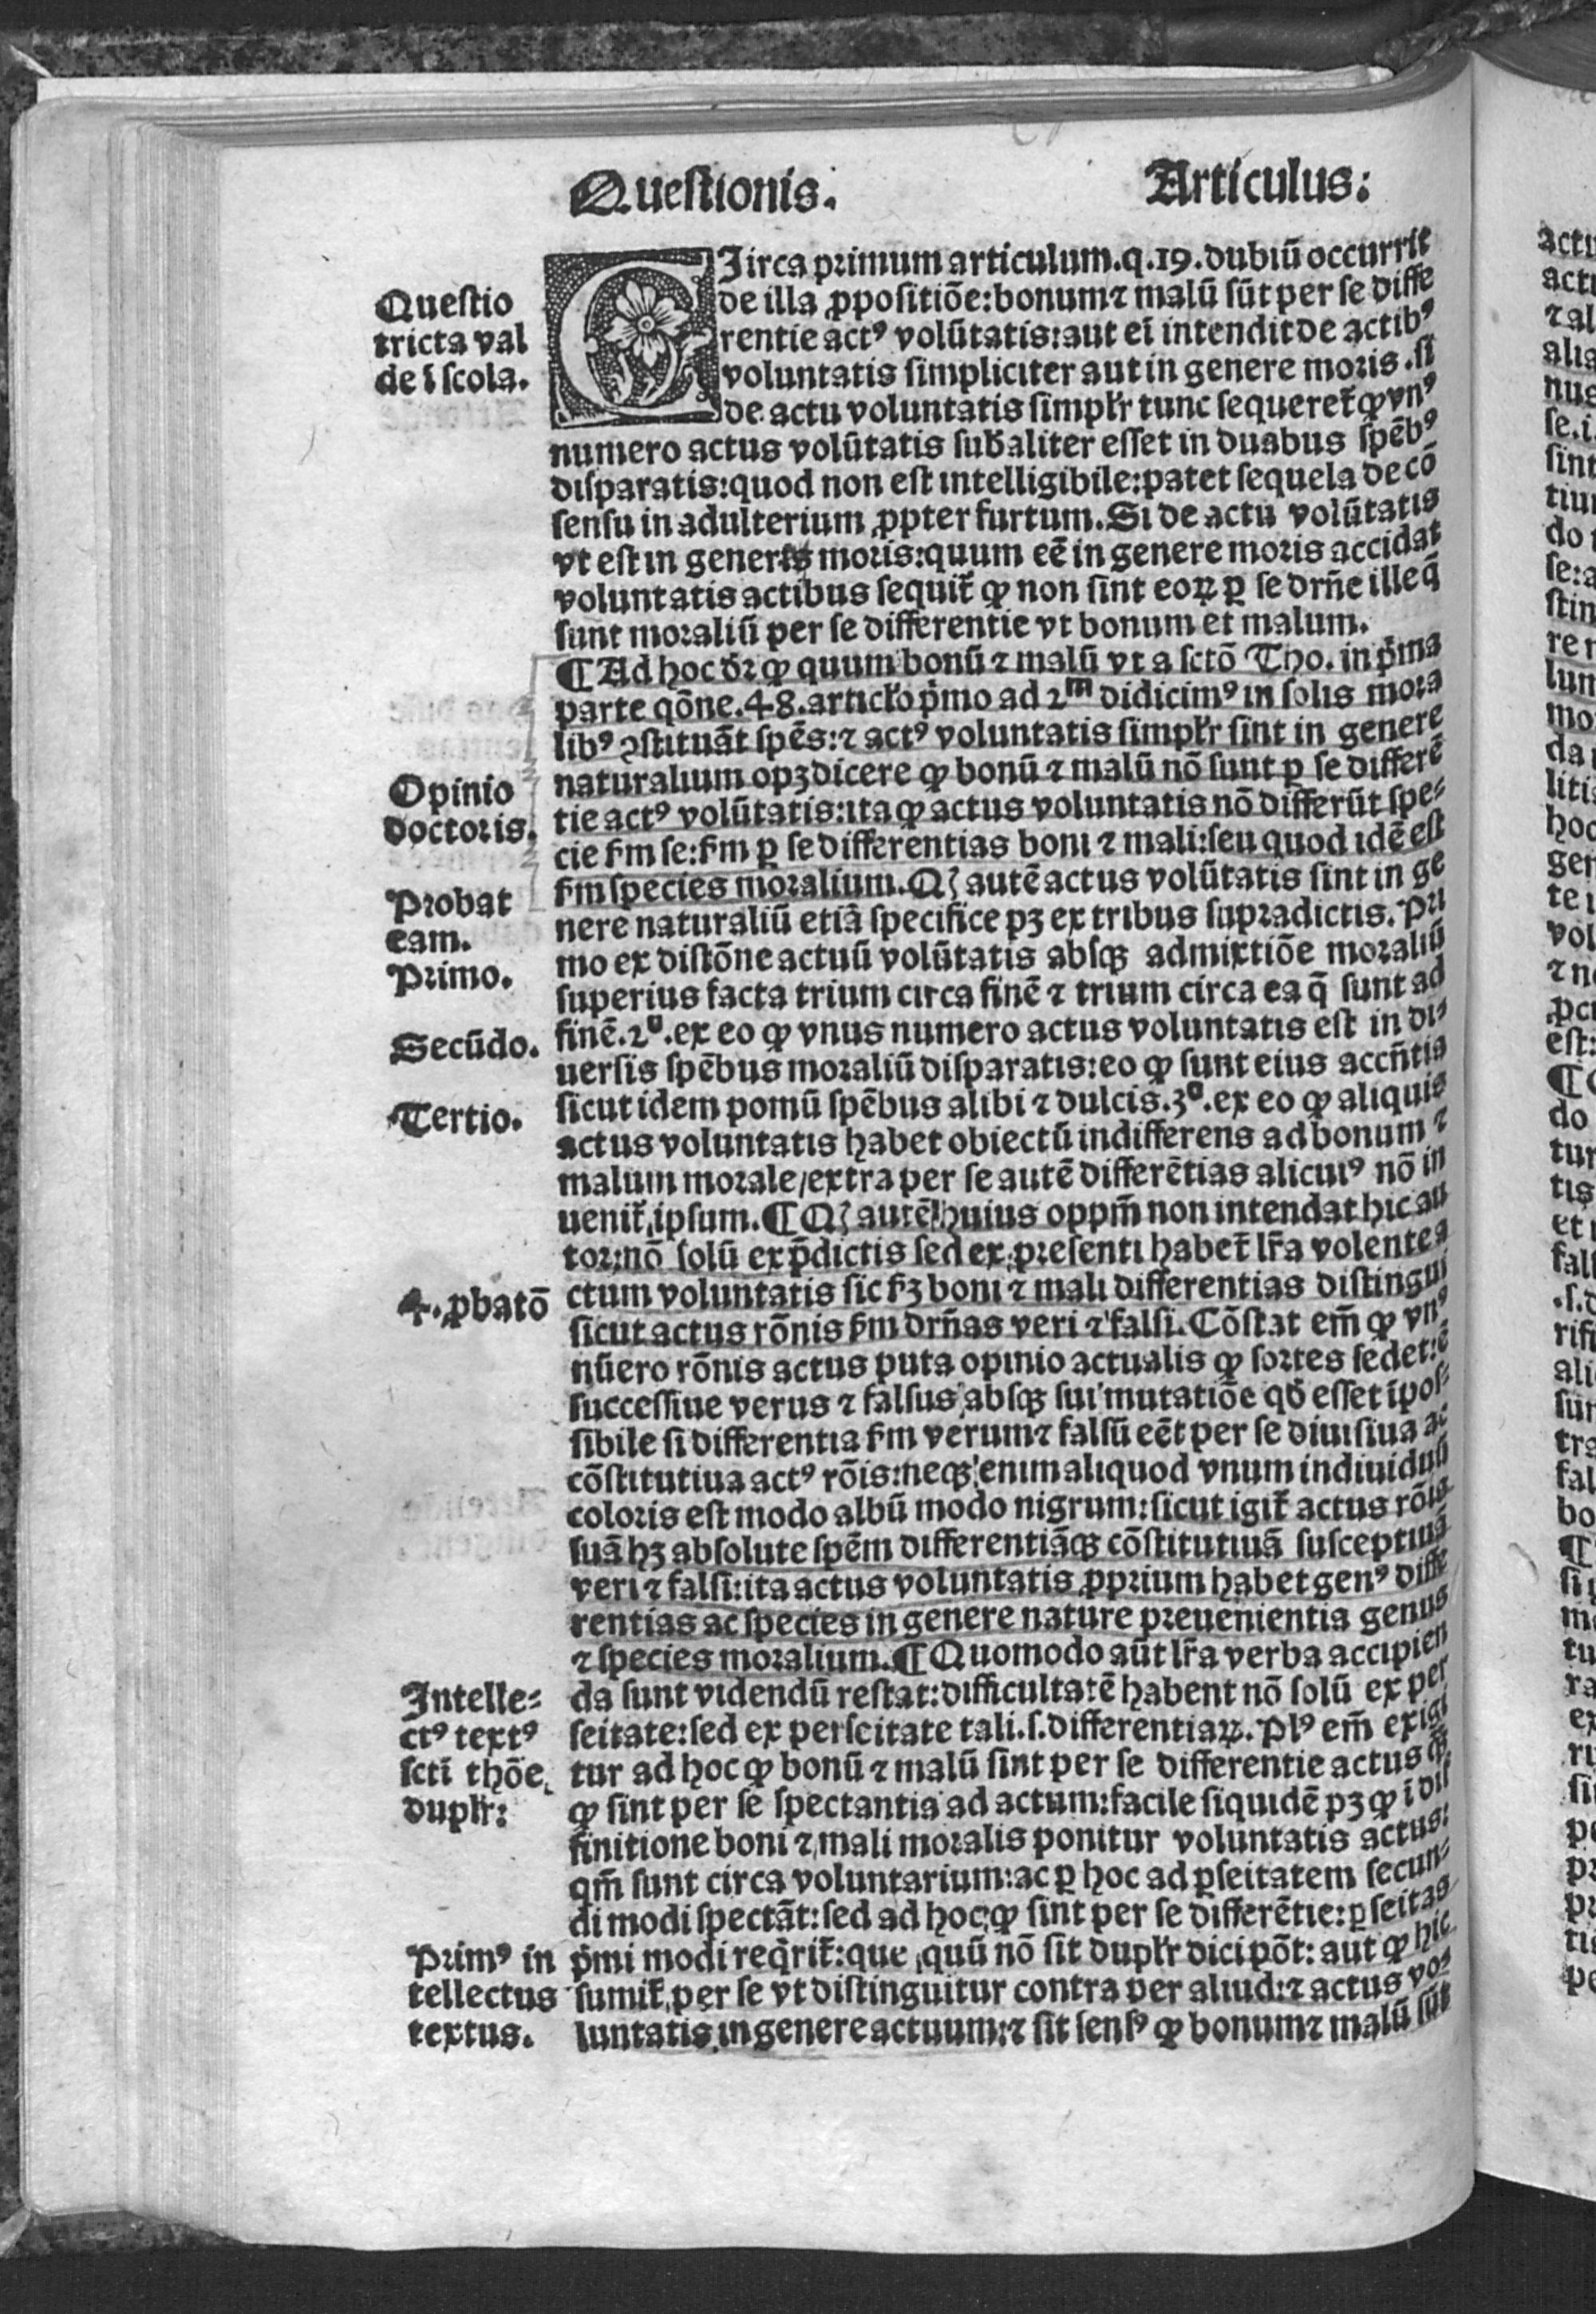 Questionis. Articulus:
CIirca primum articulum.q.19.dubiū occurrit
de illa ꝓpositiōe:bonum⁊ malū sūt per se diffe
rentie actꝰ volūtatis:aut eī intendit de actibꝰ
voluntatis simpliciter aut in genere moris.si
de actu voluntatis simplr̄ tunc sequeret̄ ꝙ vnꝰ
numero actus volūtatis subaliter esset in duabus spēbꝰ
disparatis:quod non est intelligibile:patet sequela de cō
sensu in adulterium ꝓpter furtum.Si de actu volūtatis
vt est in generis moris:quum eē in genere moris accidat
voluntatis actibus sequit̄ ꝙ non sint eoꝝ ꝑ se drn̄e ille q̄
sunt moraliū per se differentie vt bonum et malum.
¶Ad hoc dr̄ ꝙ quum bonū ⁊ malū vt a sctō Tho.in pͥma
parte qōne.48.articlo pͥmo ad 2ᵐ didicimꝰ in solis mora
libꝰ ꝯstituāt spēs:⁊ actꝰ voluntatis simplr̄ sint in genere
naturalium opꝫ dicere ꝙ bonū ⁊ malū nō sunt ꝑ se differē
tie actꝰ volūtatis:ita ꝙ actus voluntatis nō differūt spe⸗
cie ẜm se:ẜm ꝑ se differentias boni ⁊ mali:seu quod idē est
ẜm species moralium.Qꝫ autē actus volūtatis sint in ge
nere naturaliū etiā specifice pꝫ ex tribus supradictis.Pri
mo ex distōne actuū volūtatis absqꝫ admixtiōe moraliū
superius facta trium circa finē ⁊ trium circa ea q̄ sunt ad
finē.2º.ex eo ꝙ vnus numero actus voluntatis est in di⸗
uersis spēbus moraliū disparatis:eo ꝙ sunt eius accn̄tia
sicut idem pomū spēbus albi ⁊ dulcis.3º.ex eo ꝙ aliquis
actus voluntatis habet obiectū indifferens ad bonum ⁊
malum morale/extra per se autē differētias alicuiꝰ nō in
uenit̄ ipsum.¶Qꝫ autē huius oppm̄ non intendat hic au
tor:nō solū ex p̄dictis sed ex presenti habet̄ lr̄a volente a
ctum voluntatis sic ẜꝫ boni ⁊ mali differentias distingui
sicut actus rōnis ẜm drn̄as veri ⁊ falsi.Cōstat em̄ ꝙ vnꝰ
nūero rōnis actus puta opinio actualis ꝙ sortes sedet:ē
successiue verus ⁊ falsus absqꝫ sui mutatiōe qđ esset īpos⸗
sibile si differentia ẜm verum⁊ falsū eēt per se diuisiua ac
cōstitutiua actꝰ rōis:neqꝫ enim aliquod vnum indiuiduū
coloris est modo albū modo nigrum:sicut igit̄ actus rōis
suā hꝫ absolute spēm differentiāqꝫ cōstitutiuā susceptiuā
veri ⁊ falsi:ita actus voluntatis ꝓprium habet genꝰ diffe
rentias ac species in genere nature preuenientia genus
⁊ species moralium.¶Quomodo aūt lr̄a verba accipien
da sunt videndū restat:difficultatē habent nō solū ex per
seitate:sed ex perseitate tali.s.differentiaꝝ.Plꝰ em̄ exigi
tur ad hoc ꝙ bonū ⁊ malū sint per se differentie actus q̄ꝫ
ꝙ sint per se spectantia ad actum:facile siquidē pꝫ ꝙ ī dif
finitione boni ⁊ mali moralis ponitur voluntatis actus:
qm̄ sunt circa voluntarium:ac ꝑ hoc ad ꝑseitatem secun⸗
di modi spectāt:sed ad hoc ꝙ sint per se differētie:ꝑseitas
pͥmi modi reqͥrit̄:que quū nō sit duplr̄ dici pōt:aut ꝙ hic
sumit̄ per se vt distinguitur contra per aliud:⁊ actus vo⸗
luntatis in genere actuum:⁊ sit sensꝰ ꝙ bonum⁊ malū sūt
Questio
tricta val
de ī scola.
Opinio
doctoris.
Probat
eam.
Primo.
Secūdo.
Tertio.
4.ꝓbatō
Intelle⸗
ctꝰ textꝰ
scti thōe
duplr̄:
Primꝰ in
tellectus
textus.